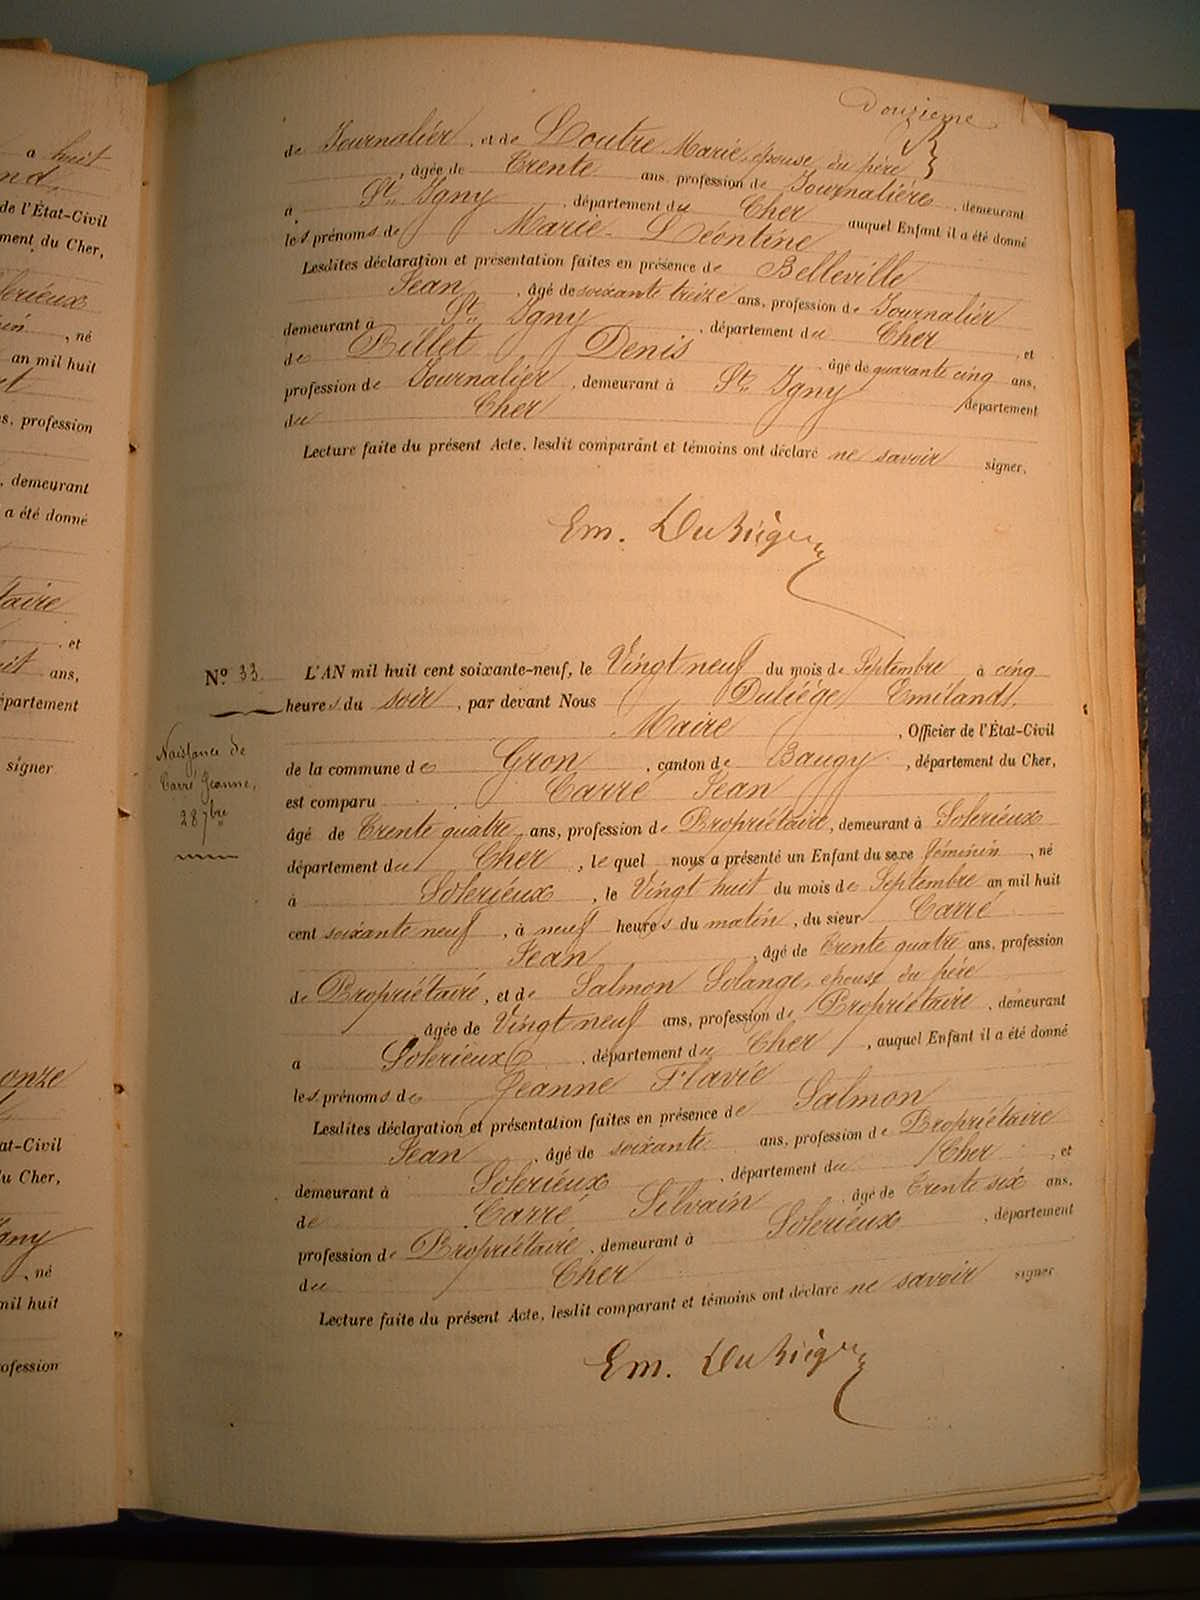 Douzieme
a huit
nd.
de l'État-Civil
ment du Cher,
lerieux
, né
an mil huit
s, profession
, demeurant
a été donné
taire
, et
ans,
épartement
signer
onze
at-Civil
u Cher,
gny
, né
mil huit
ofession
de Journalier, et de Loutre Marie, épouse du père
, âgée de Trente ans, profession de Journalière, demeurant
à St. Igny, département du Cher auquel Enfant il a été donné
les prénoms de Marie-Léontine
Lesdites déclaration et présentation faites en présence de Belleville
Jean, âgé de soixante treize ans, profession de Journalier
demeurant à St. Igny, département du Cher, et
de Billet Denis, âgé de quarante cinq ans,
profession de Journalier, demeurant à St. Igny département
du Cher
Lecture faite du présent Acte, lesdit comparant et témoins ont déclaré ne savoir signer.
Em. Duliège
N° 33. L'AN mil huit cent soixante-neuf, le Vingt neuf du mois de Septembre à cinq
heures du soir, par devant Nous Duliége Emiland,
Maire, Officier de l'État-Civil
de la commune de Gron, canton de Baugy, département du Cher,
est comparu Carré Jean
âgé de Trente quatre ans, profession de Propriétaire, demeurant à Solerieux
département du Cher, le quel nous a présenté un Enfant du sexe féminin, né
à Solerieux, le Vingt huit du mois de Septembre an mil huit
cent soixante neuf, à neuf heures du matin, du sieur Carré
Jean, âgé de Trente quatre ans, profession
de Propriétaire, et de Salmon Solange, épouse du père
, âgée de Vingt neuf ans, profession de Propriétaire, demeurant
à Solerieux, département du Cher, auquel Enfant il a été donné
les prénoms de Jeanne Flavie
Lesdites déclaration et présentation faites en présence de Salmon
Jean, âgé de soixante ans, profession de Propriétaire
demeurant à Solerieux, département du Cher, et
de Carré Silvain, âgé de Trente six ans,
profession de Propriétaire, demeurant à Solerieux, département
du Cher
Lecture faite du présent Acte, lesdit comparant et témoins ont déclaré ne savoir signer
Em. Duliège
Naissance de
Carré Jeanne,
28 7bre